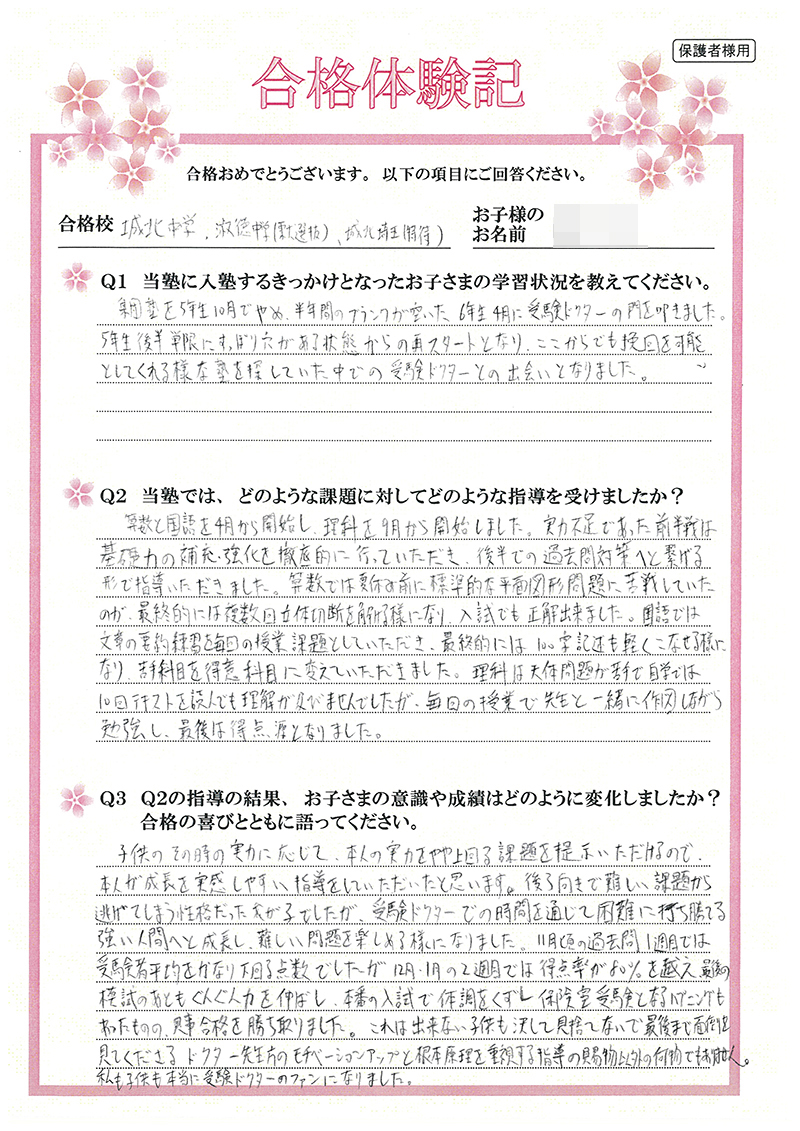 保護者様用
合格体験記
合格おめでとうございます。以下の項目にご回答ください。
合格校 城北中学、淑徳中学(東大選抜)、城北埼玉(特待)
お子様の
お名前
Q1 当塾に入塾するきっかけとなったお子さまの学習状況を教えてください。
集団塾を5年生10月でやめ、半年間のブランクが空いた6年生4月に受験ドクターの門を叩きました。
5年生後半単限にすっぽり穴がある状態からの再スタートとなり、ここからでも挽回を可能
としてくれる様な塾を探していた中での受験ドクターとの出会いとなりました。
Q2 当塾では、どのような課題に対してどのような指導を受けましたか？
算数と国語を4月から開始し、理科を9月から開始しました。実力不足であった前半戦は
基礎力の補充・強化を徹底的に行っていただき、後半での過去問対策へと繋げる
形で指導いただきました。算数では夏休み前に標準的な平面図形問題に苦戦していた
のが、最終的には複数回立体切断を解ける様になり、入試でも正解出来ました。国語では
文章の要約練習を毎回の授業、課題としていただき、最終的には100字記述も軽くこなせる様に
なり、苦手科目を得意科目に変えていただきました。理科は天体問題が苦手で自学では
10回テキストを読んでも理解が及びませんでしたが、毎回の授業で先生と一緒に作図しながら
勉強し、最後は得点源となりました。
Q3 Q2の指導の結果、お子さまの意識や成績はどのように変化しましたか？
合格の喜びとともに語ってください。
子供のその時の実力に応じて、本人の実力をやや上回る課題を提示いただけるので、
本人が成長を実感しやすい指導をしていただいたと思います。後ろ向きで難しい課題から
逃げてしまう性格だった我が子でしたが、受験ドクターでの時間を通じて困難に打ち勝てる
強い人間へと成長し、難しい問題を楽しめる様になりました。11月頃の過去問1週目では
受験者平均をかなり下回る点数でしたが12月・1月の2週目では得点率が80%を越え、最後の
模試のあともぐんぐん力を伸ばし、本番の入試で体調をくずし保険室受験となるハプニングも
あったものの、見事合格を勝ち取りました。これは出来ない子供も決して見捨てないで最後まで面倒を
見てくださるドクター先生方のモチベーションアップと根本原理を重視する指導の賜物以外の何物でもありません。
私も子供も本当に受験ドクターのファンになりました。